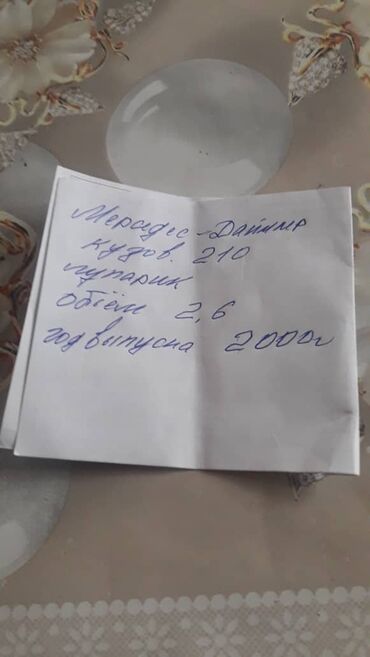 Мерседес - Даймлер
кузов. 210
лупарик
Объём 2,6
год выпуска 2000г